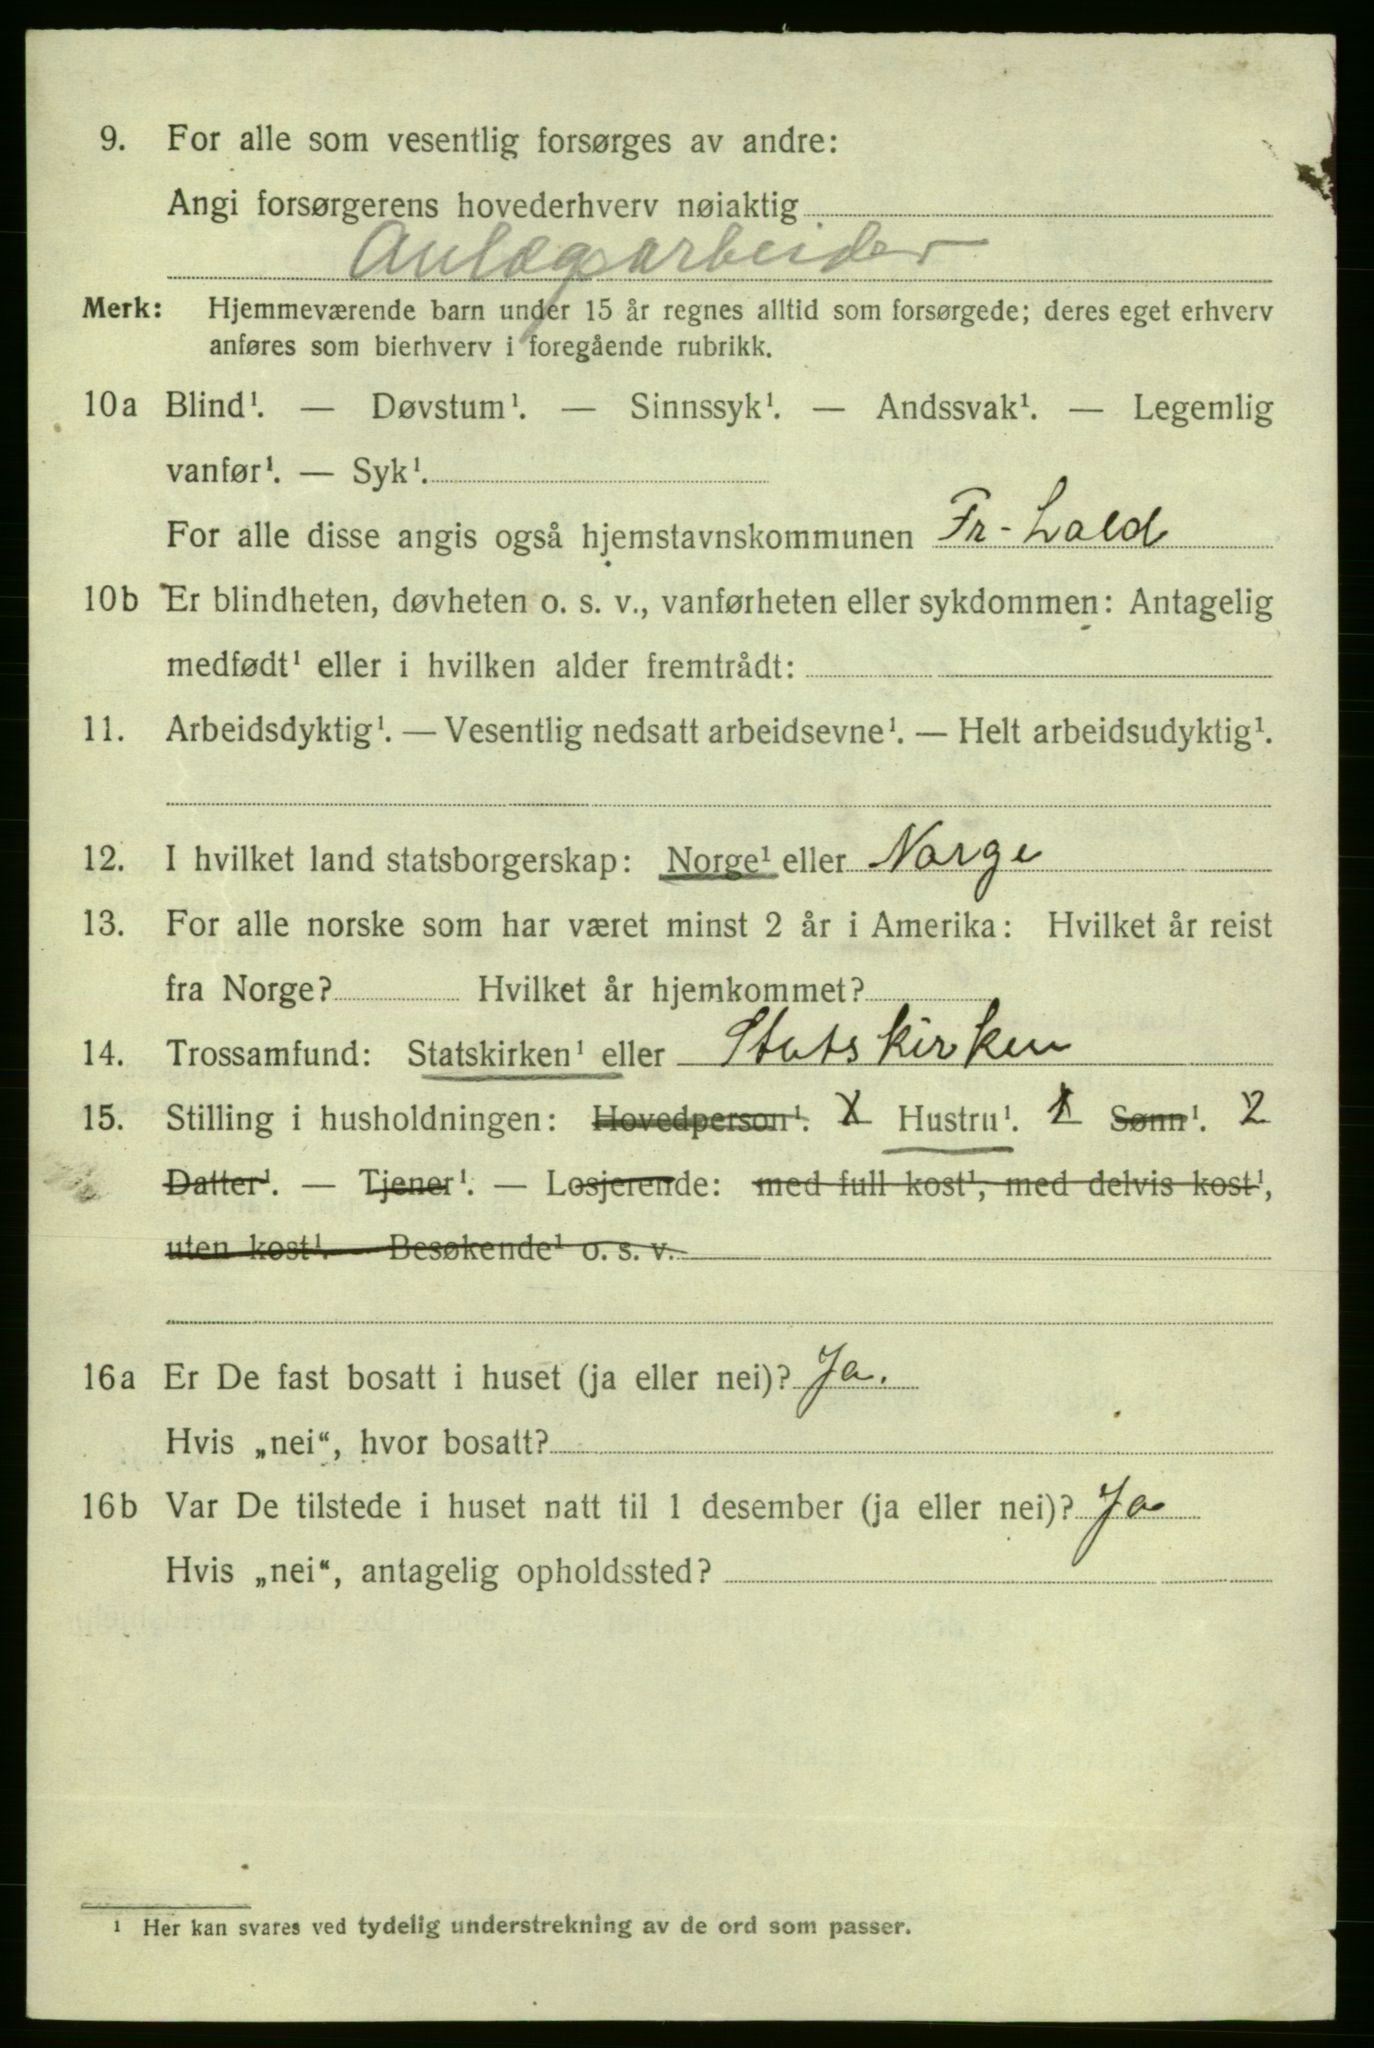 9. For alle som vesentlig forsørges av andre:
Angi forsørgerens hovederhverv nøiaktig
Anlægsarbeider
Merk: Hjemmeværende barn under 15 år regnes alltid som forsørgede; deres eget erhverv
anføres som bierhverv i foregående rubrikk.
10a Blind¹. — Døvstum¹. — Sinnssyk¹. — Andssvak¹. — Legemlig
vanfør¹. — Syk¹.
For alle disse angis også hjemstavnskommunen Fr-hald
10b Er blindheten, døvheten o. s. v., vanførheten eller sykdommen: Antagelig
medfødt¹ eller i hvilken alder fremtrådt:
11. Arbeidsdyktig¹. — Vesentlig nedsatt arbeidsevne¹. — Helt arbeidsudyktig¹.
12. I hvilket land statsborgerskap: Norge¹ eller Norge
13. For alle norske som har været minst 2 år i Amerika: Hvilket år reist
fra Norge? Hvilket år hjemkommet?
14. Trossamfund: Statskirken¹ eller Statskirken
15. Stilling i husholdningen: Hovedperson¹. Hustru¹. Sønn¹. 2
Datter¹. — Tjener¹. — Losjerende: med full kost¹, med delvis kost¹,
uten kost¹. — Besøkende¹ o. s. v.
16a Er De fast bosatt i huset (ja eller nei)? Ja.
Hvis „nei“, hvor bosatt?
16b Var De tilstede i huset natt til 1 desember (ja eller nei)? Ja
Hvis „nei“, antagelig opholdssted?
¹ Her kan svares ved tydelig understrekning av de ord som passer.